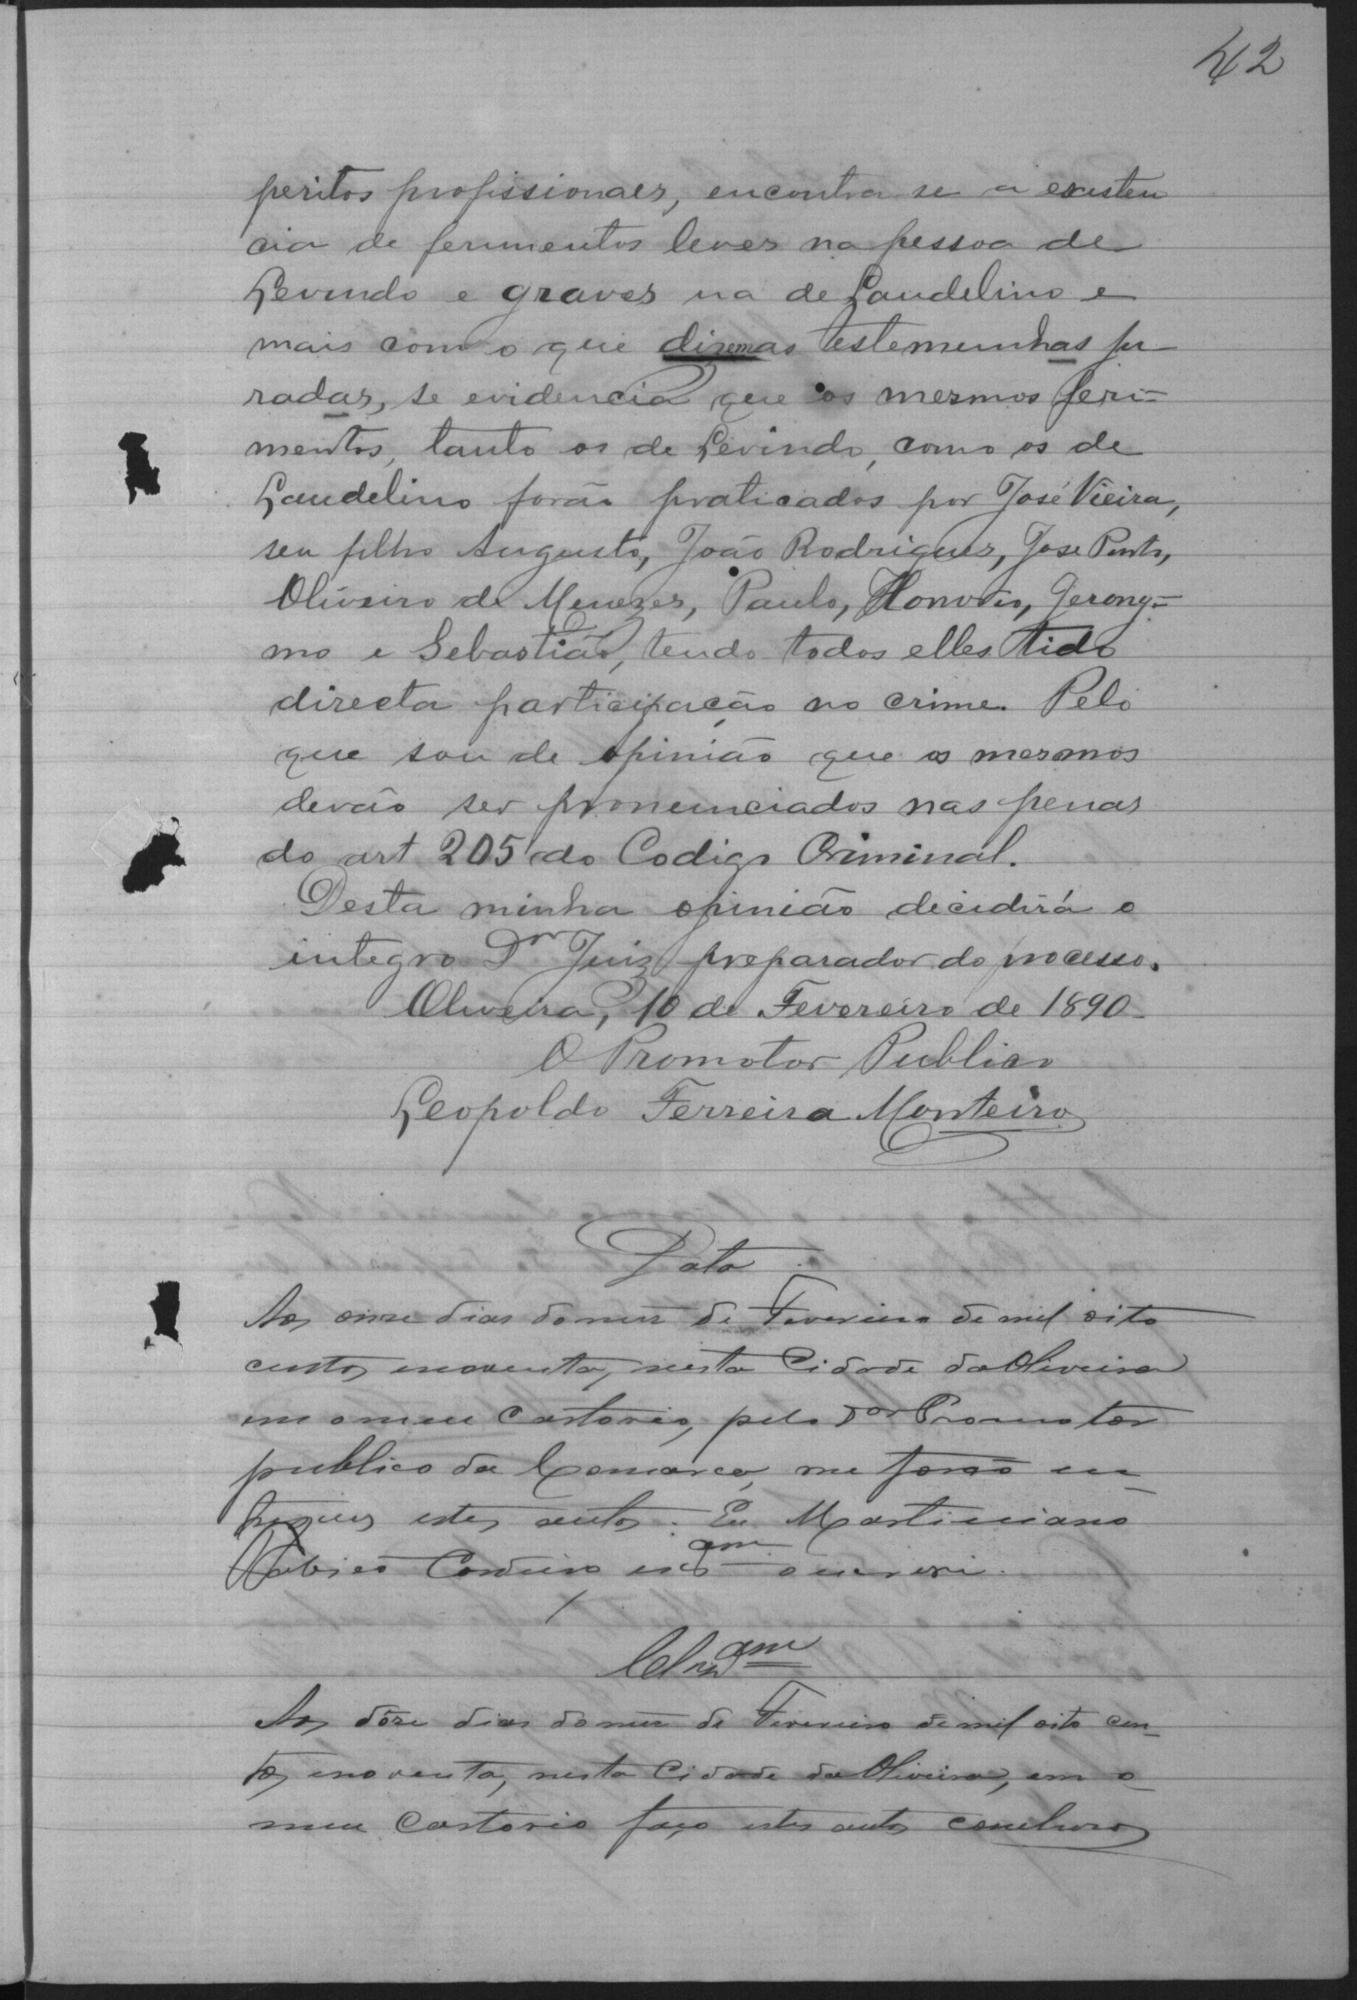 42
peritos profissionaes, encontra se a existen
cia de ferimentos leves na pessoa de
Levindo e graves na de Laudelino e
mais com o que dizem as testemunhas ju-
radas, se evidencia que os mesmos feri-
mentos, tanto os de Levindo, como os de
Laudelino forão praticados por José Vieira,
seu filho Augusto, João Rodrigues, Jose Pinto,
Oliveiro de Menezes, Paulo, Honorio, Gerony-
mo e Sebastião, tendo todos elles tido
directa participação no crime. Pelo
que sou de opinião que os mesmos
devão ser pronunciados nas penas
do art 205 do Codigo Criminal.
Desta minha opinião decidirá o
integro Dr Juiz preparador do processo.
Oliveira, 10 de Fevereiro de 1890
O Promotor Publico
Leopoldo Ferreira Monteiro
Data
Aos onze dias do mez de Fevereiro de mil oito
centos e noventa, nesta Cidade da Oliveira
em o meu Cartorio, pelo Dor Promotor
publico da Comarca, me forão en-
tregues estes autos. Eu Martiniano
Cordeiro escam o escrevi.
Clsam
Aos dôze dias do mez de Fevereiro de mil oito cen-
tos e noventa, nesta Cidade da Oliveira, em o
meu Cartorio faço estes autos conclusos